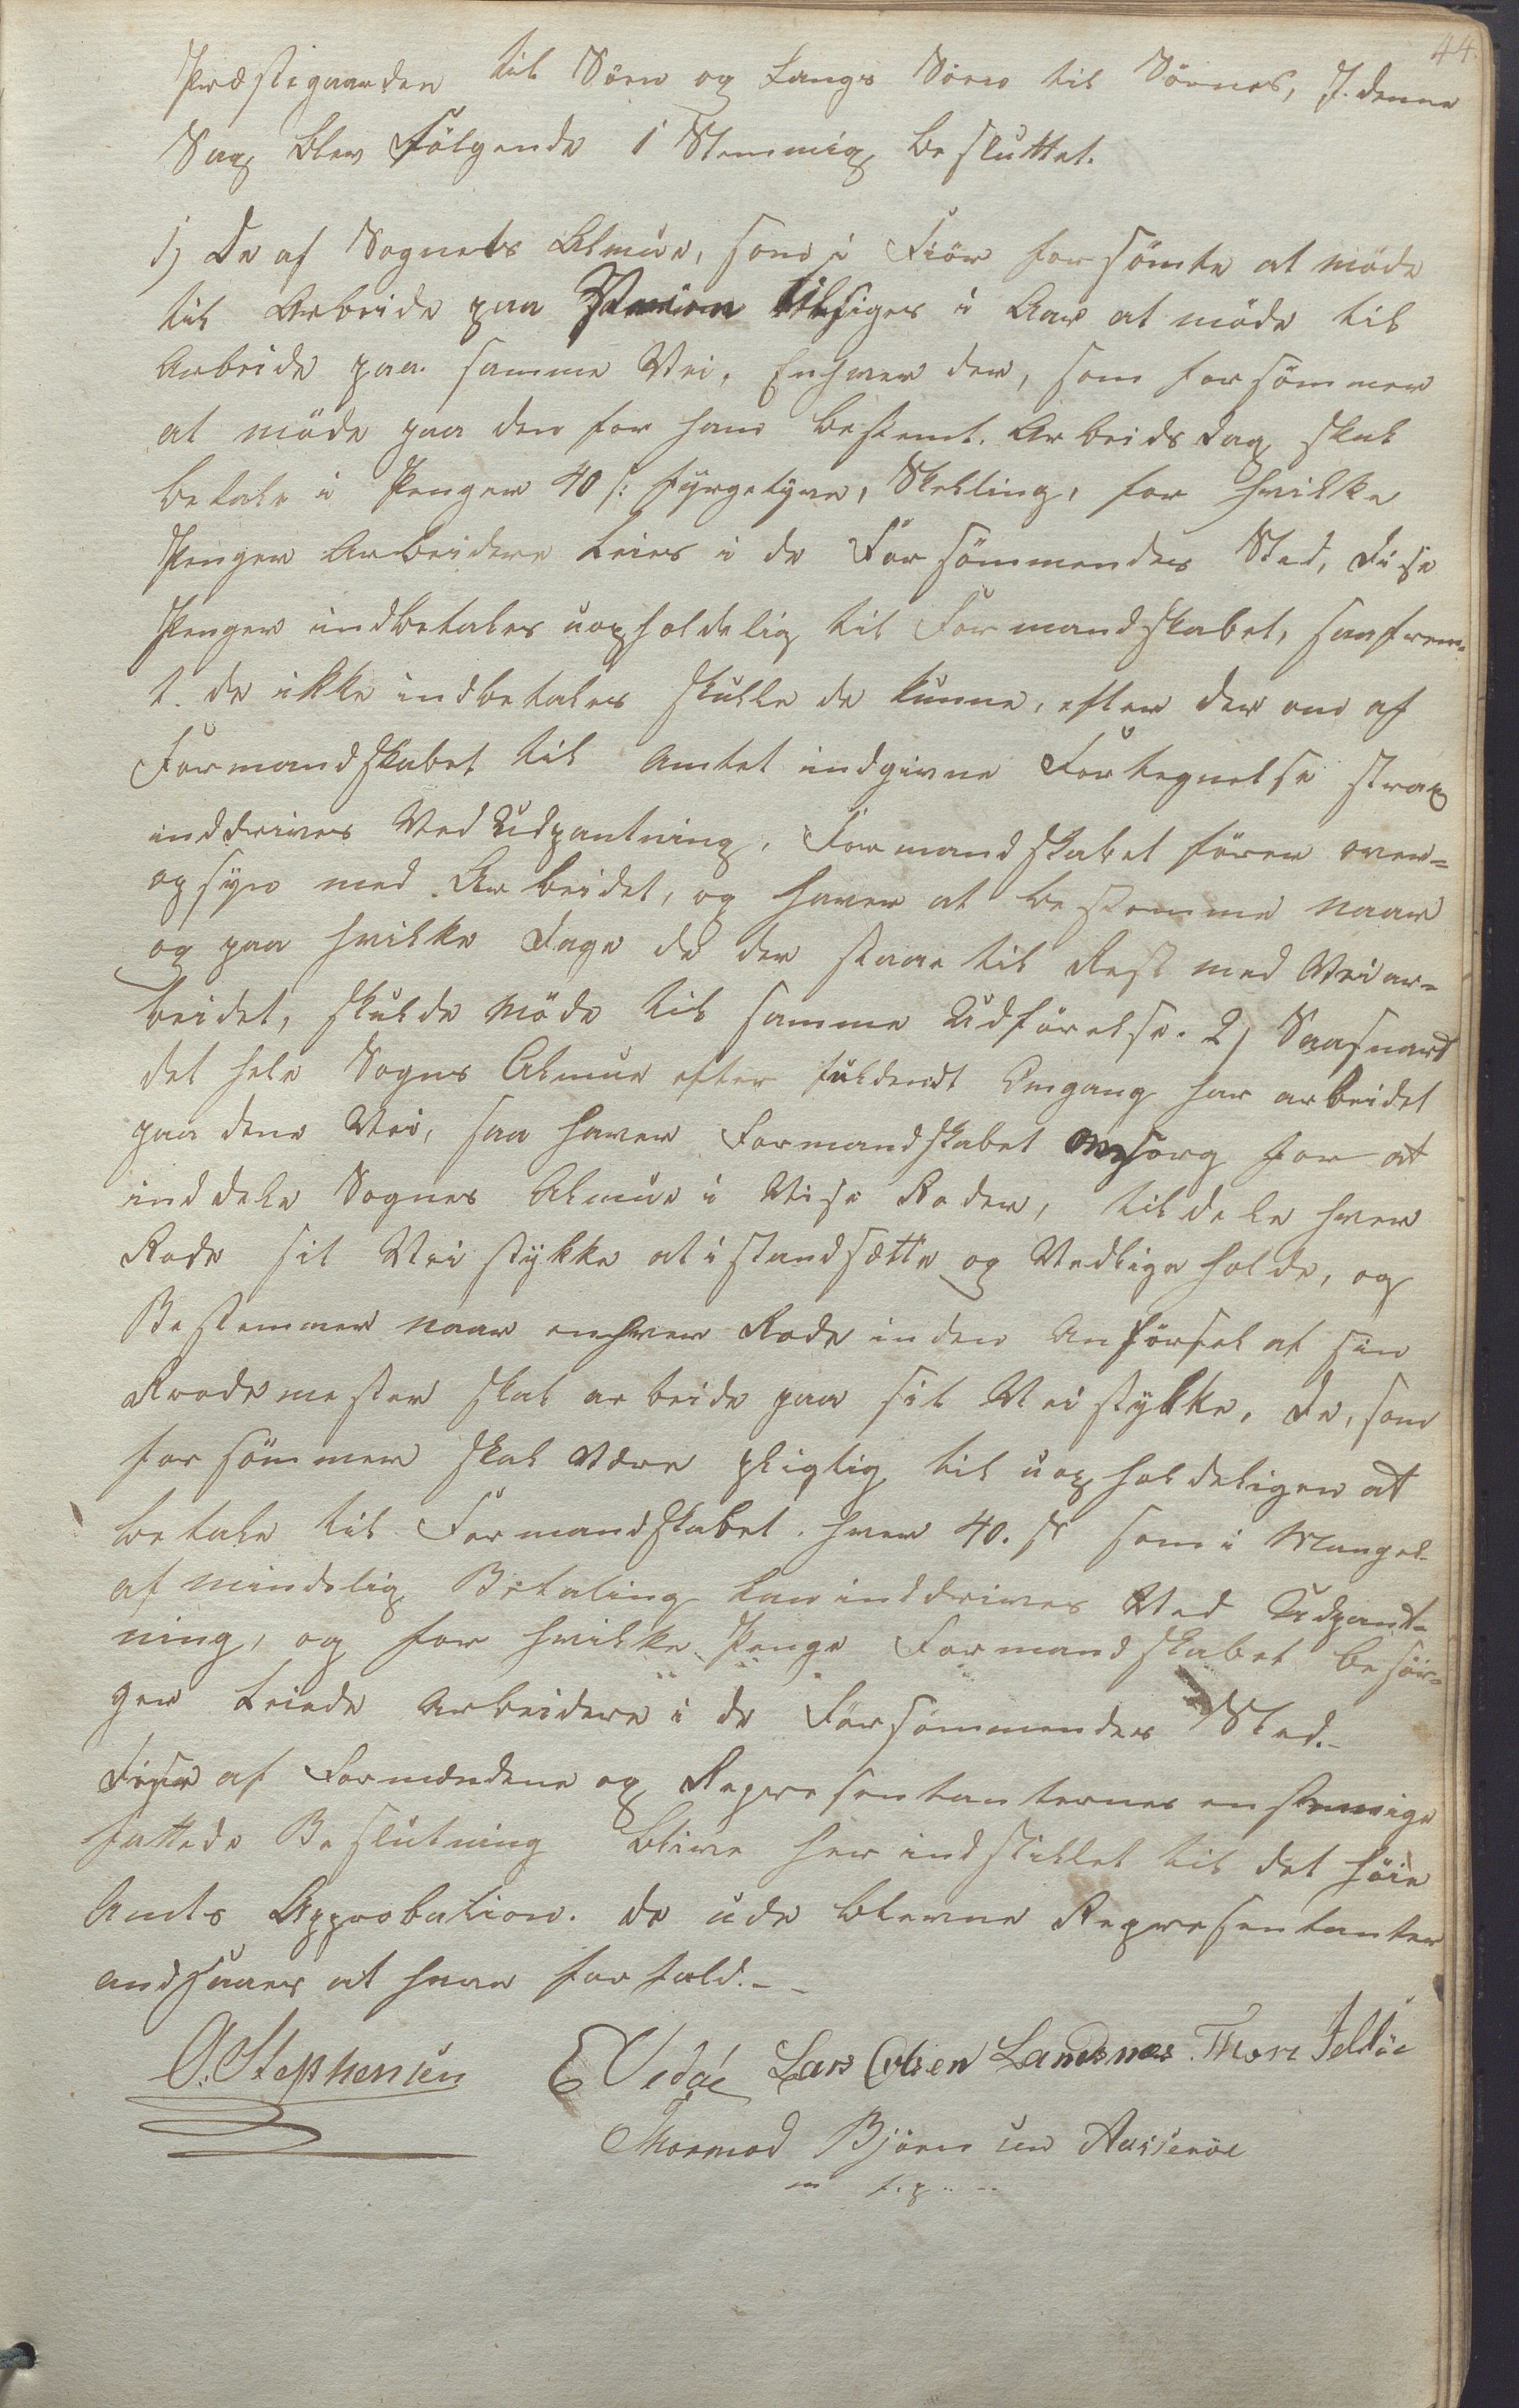 44.
Præstegaarden til Söen og Langs Söen til Sörnes, I denne
Sag blev Fölgende 1 Stemmig besluttet.
1) De af Sognets Almue, som i Fiör forsömte at möde
til Arbeide paa Veeien tilsiges i Aar at möde til
Arbeide paa samme Vei. Enhver der, som forsömmer
at möde paa den for ham bestemt. Arbeids Dag skal
betale i Penger 40 s: fyrgetyve, Skelling, for hvilke
Penger Arbeidere leies i de Forsömmendes Sted, Disse
Penger indbetales uopholdelig til Formandskabet, saafrem-
t. de ikke indbetales skulle de kunne, efter der om af
Formandskabet til Amtet indgivne Fortegnelse strax
inddrives Ved Udpantning. Formandskabet förer over-
opsyn med Arbeidet, og haver at bestemme naar
og paa hvilke Dage de der staae til Rest med Veiar-
beidet, skulde Möde til samme Udförelse. 2) Saasnart
det hele Sogns Almue efter fuldendt Omgang har arbeidet
paa dene Vei, saa haver Formandskabet omsorg for at
inddele Sognes Almue i Visse Roder, tildele hver
Rode sit Veistykke at istandsætte og Vedligeholde, og
Bestemmer naar enhver Rode inden Anförsel af sin
Roodemester skal arbeide paa sit Veistykke. De, som
forsömmer skal være pligtig til uopholdeligen at
betale til Formandskabet. hver 40. s som i Mangel
af mindelig Betaling kan inddrives Ved Udpant-
ning, og for hvilke Penge Formandskabet besör-
ger Leiede Arbeidere i de Forsömmendes Sted.-
Disse af Formændene og Repræsentanternes enstemmige
fattede Beslutning blive her indstillet til det höie
Amts Approbation. de ude blevne Representanter
andsaaes at have forfald.-
O. Stephensen E Vedöe Lars Olsen Landsnæs. Thore Feldöe
Thormod Björnsen
m f. p.